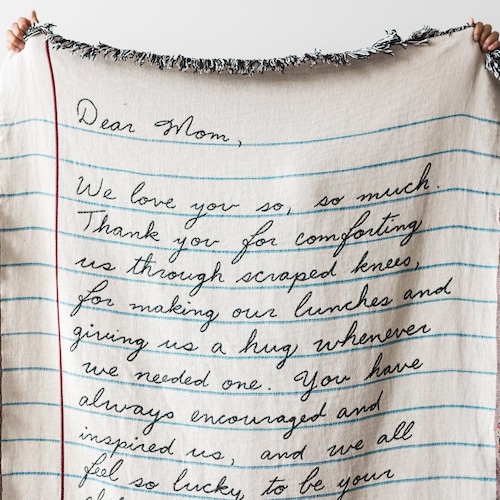 Dear Mom,
We love you so, so much.
Thank you for comforting
us through scraped knees,
for making our lunches and
giving us a hug whenever
we needed one. You have
always encouraged and
inspired us, and we all
feel so lucky to be your